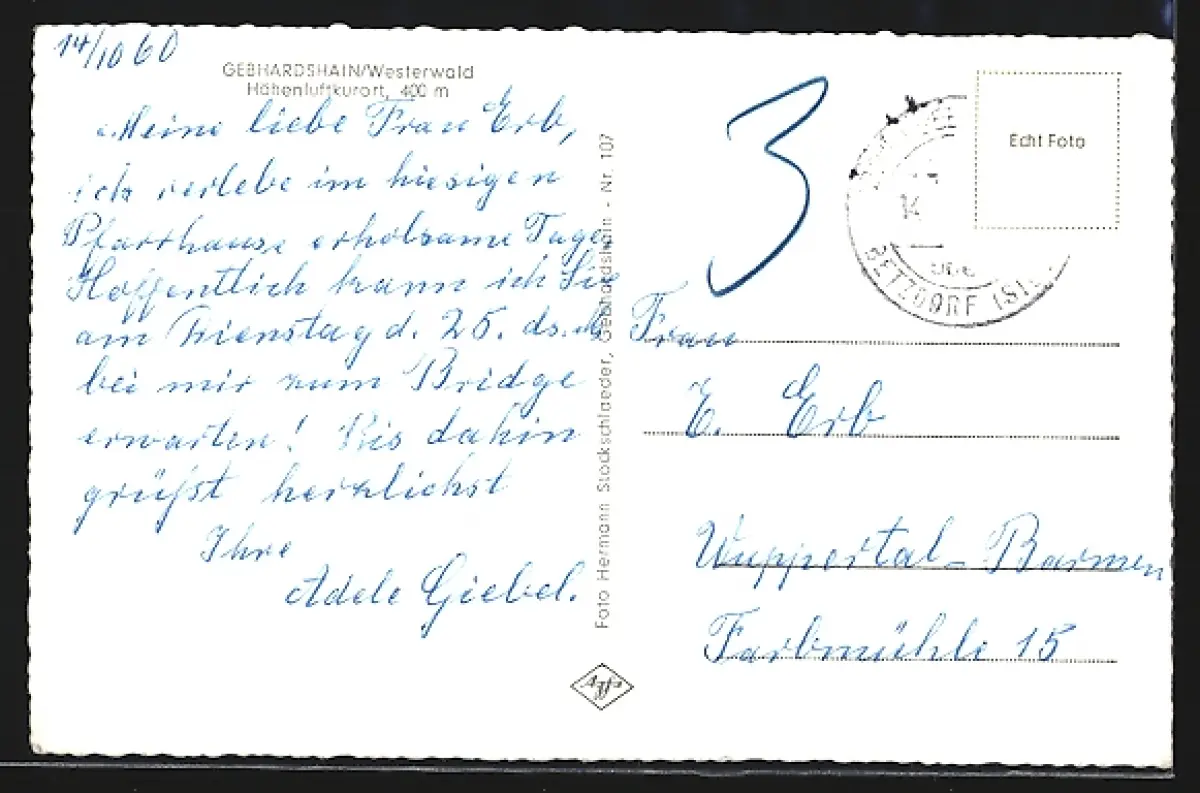 14/10 60
GEBHARDSHAIN/Westerwald
Höhenluftkurort, 400 m
Meine liebe Frau Erb,
ich verlebe im hiesigen
Pfarrhause erholsame Tage.
Hoffentlich kann ich Sie
am Dienstag d. 25. ds. M.
bei mir zum Bridge
erwarten! Bis dahin
grüßt herzlichst
Ihre
Adele Giebel.
Foto Hermann Stockschlaeder, Gebhardshain - Nr. 107
Agfa
3
Echt Foto
14
BETZDORF (SI
Frau
E. Erb
Wuppertal-Barmen
Farbmühle 15